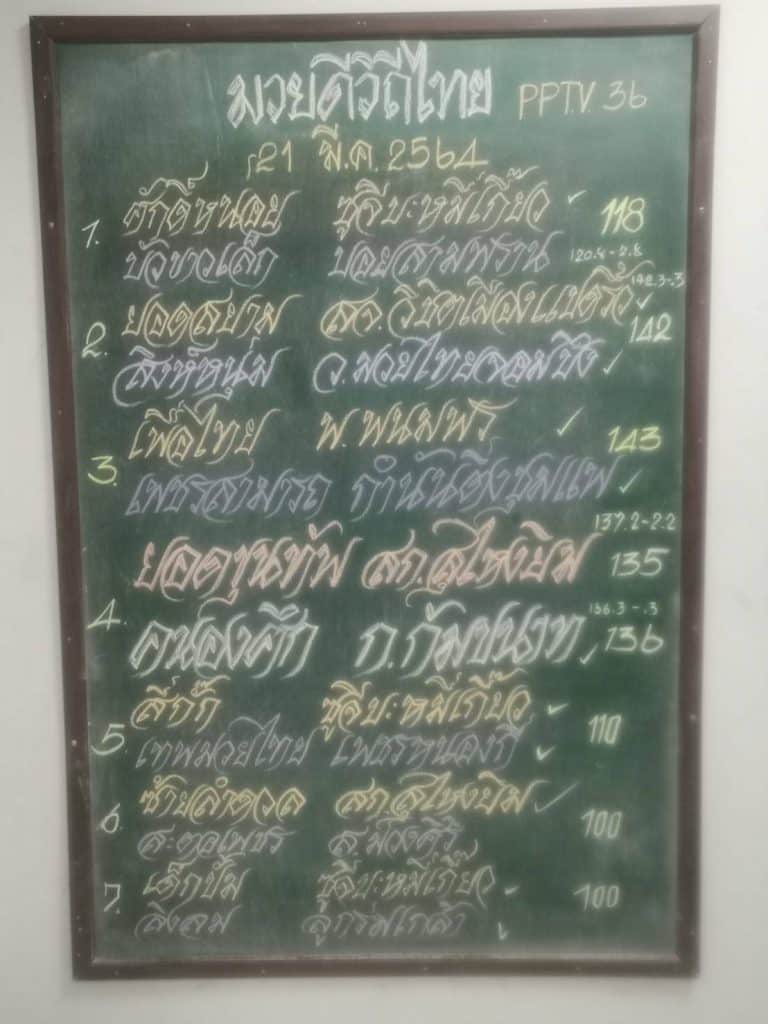 มวยดีวิถีไทย PPTV. 36
21 มี.ค. 2564
1. ศักดิ์หนอย ซูจีบะหมี่เกี๊ยว ✓ 118
บัวขาวเล็ก ปอยสามพราน 120.4-2.4
2. ยอดสยาม สจ.วิชิตเมืองแปดริ้ว ✓ 142.3-.3
142
สิงห์หนุ่ม ว.มวยไทยจอมบึง ✓
3. เพื่อไทย พ.พนมพร ✓ 143
เพชรสามารถ กำนันติ่งชุมแพ ✓
137.2-2.2
4. ยอดขุนทัพ สก.สุไหงยิม 135
136.3-.3
คนองศึก ก.กัมปนาท ✓ 136
5. สีกั๊ก ซูจีบะหมี่เกี๊ยว ✓ 110
เทพมวยไทย เพชรหนองกี่ ✓
6. ซ้ายลำดวล สก.สุไหงยิม ✓ 100
สะตอเพชร
7. เด็กปั้ม ซูจีบะหมี่เกี๊ยว ✓ 100
สิงลม ลูกร่มเกล้า ✓